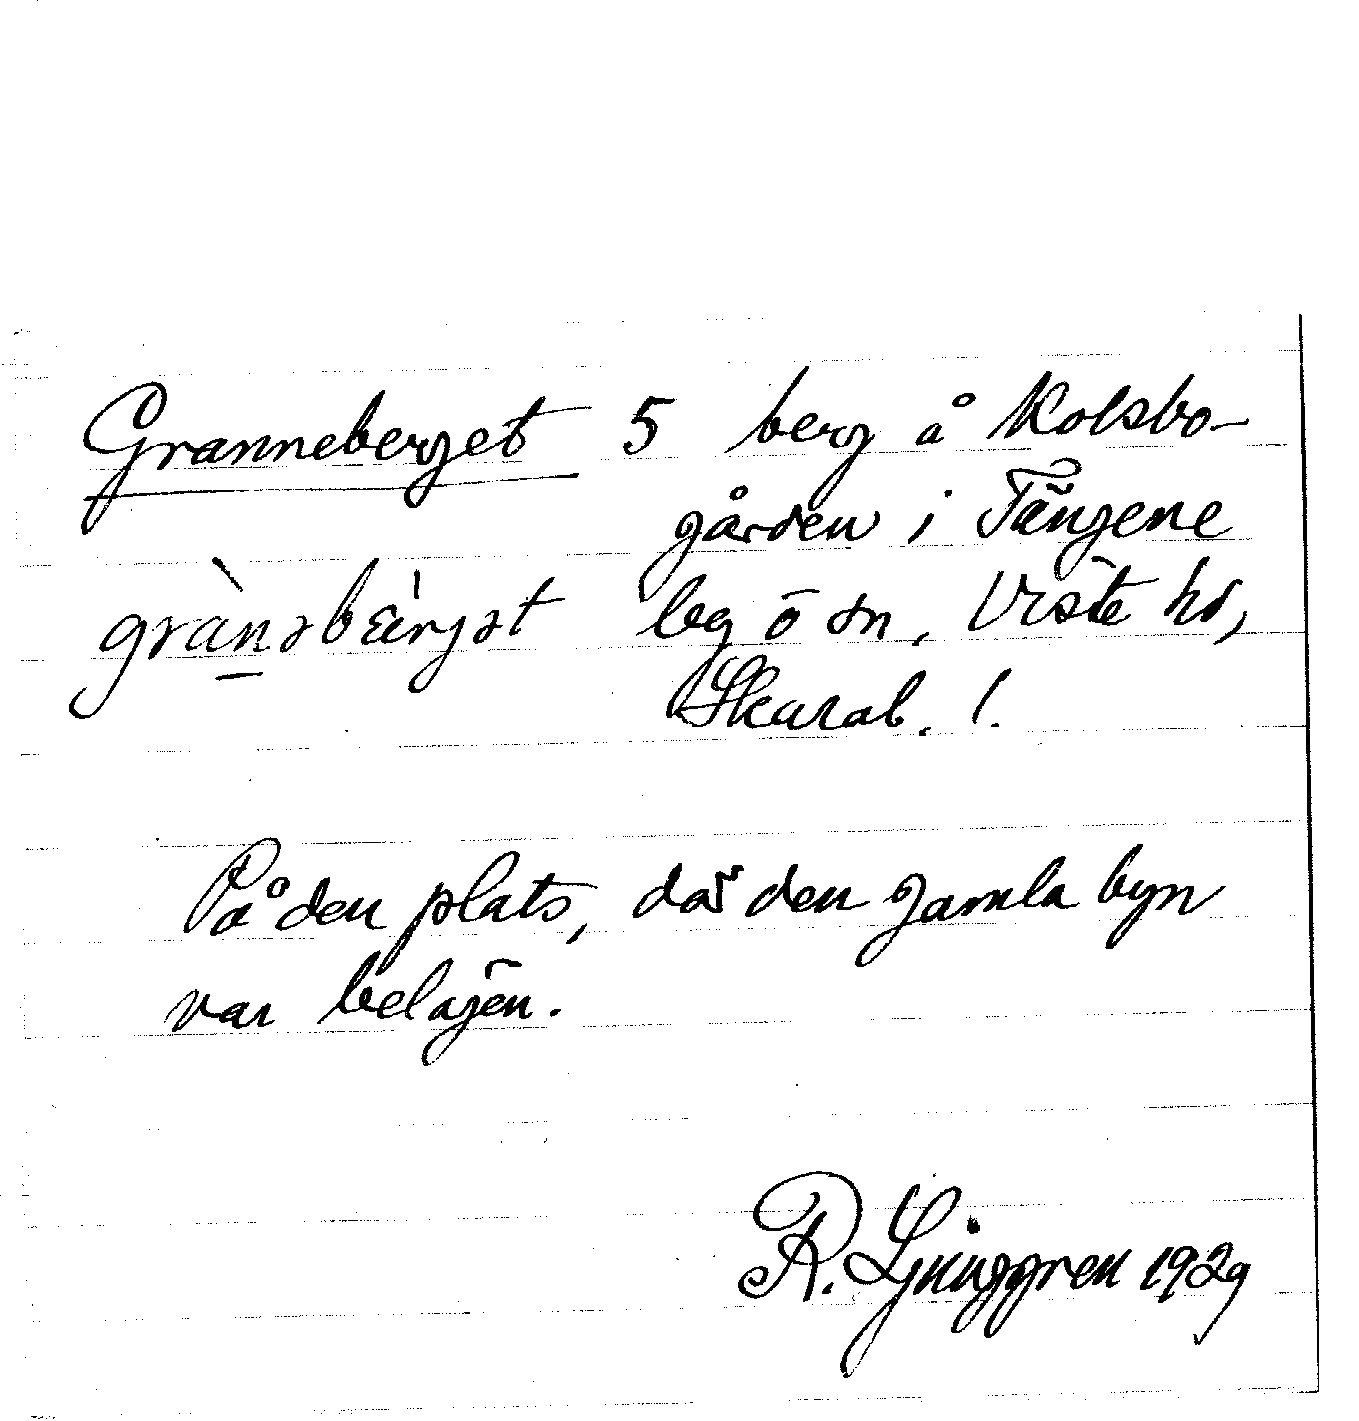 Granneberget 5 berg å Kolsbo-
gården i Tängene
grànəbærjət Leg ö sn, Viste hd,
Skarab. l.
På den plats, där den gamla byn
var belägen.
R. Ljunggren 1929